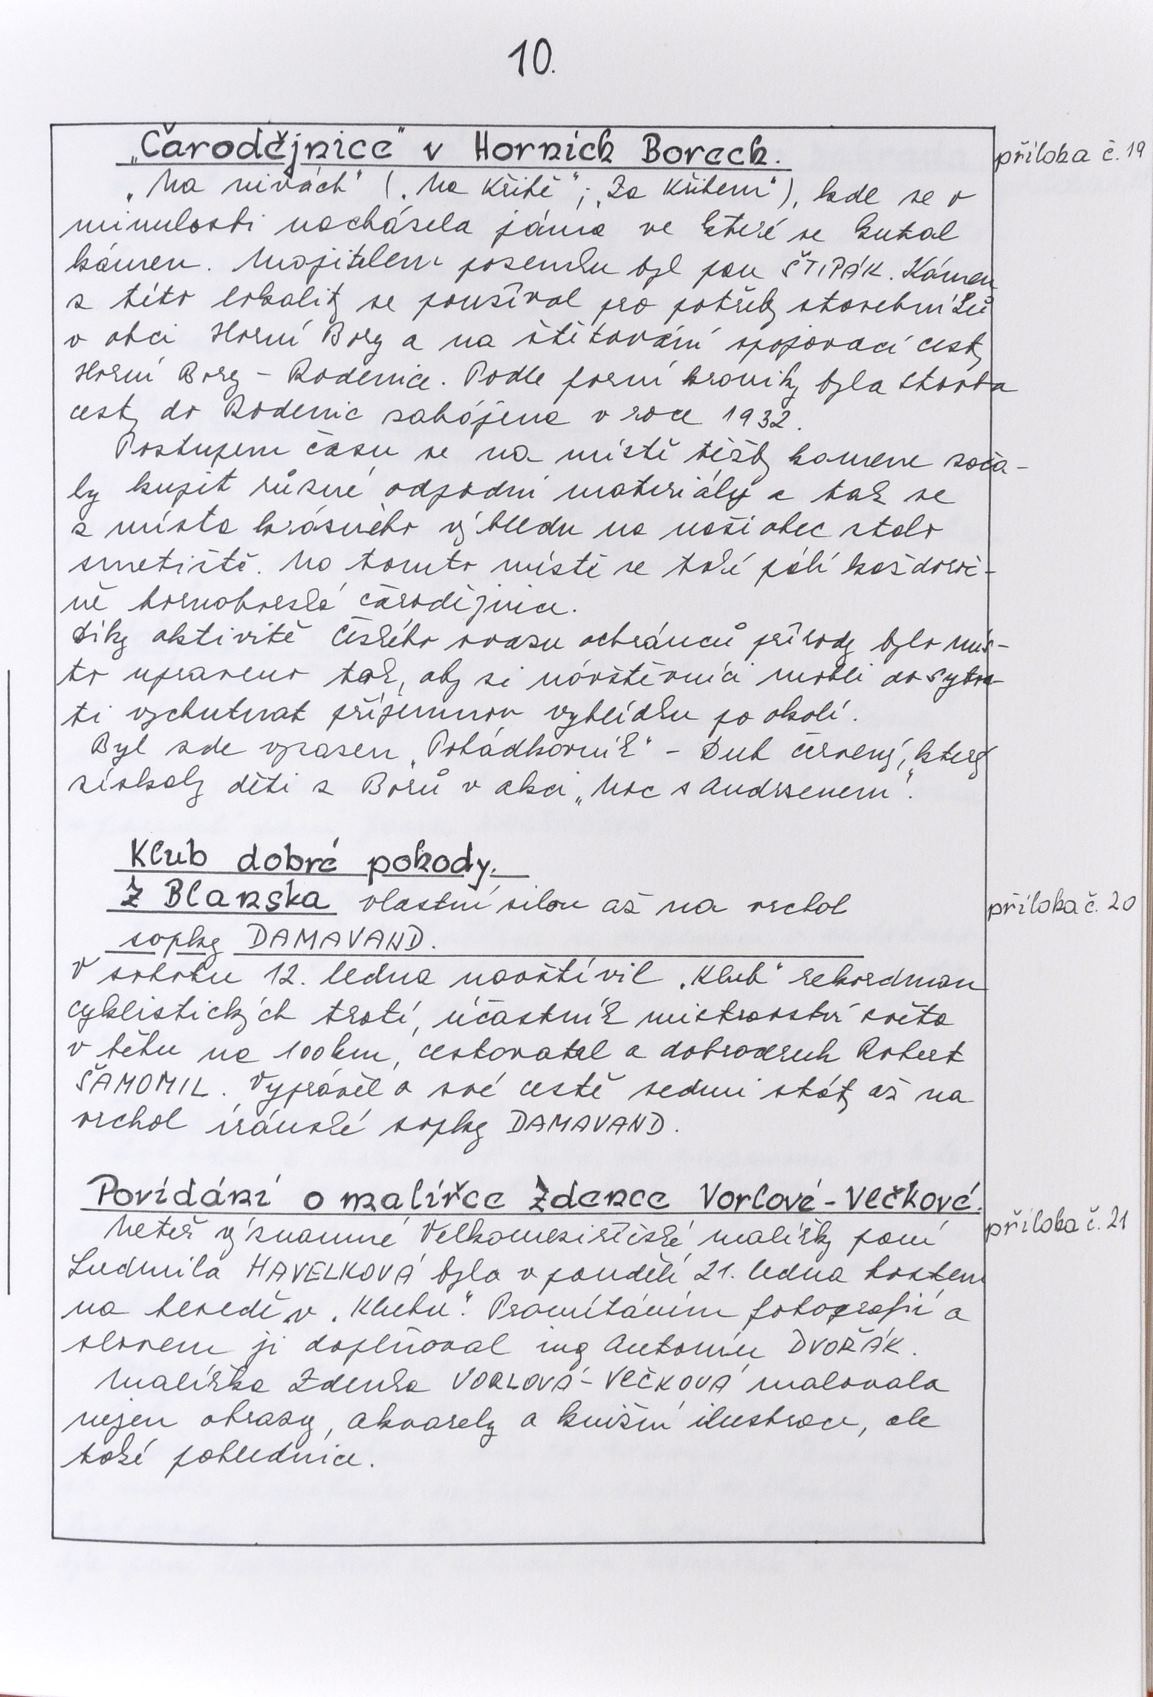 10.
„Čarodějnice" v Horních Borech.
příloha č. 19
„Na nivách" („Na Křibě"; „Za Křibem"), kde se v
minulosti nacházela jáma ve které se kutal
kámen. Majitelem pozemku byl pan ŠTIPÁK. Kámen
z této lokality se používal pro potřeby stavebníků
v obci Horní Bory a na štětování spojovací cesty
Horní Bory - Rodenice. Podle farní kroniky byla stavba
cesty do Rodenic zahájena v roce 1932.
Postupem času se na místě těžby kamene zača-
ly kupit různé odpadní materiály a tak se
z místa krásného výhledu na naši obec stalo
smetiště. Na tomto místě se také pálí každoroč-
ně hornoborské čarodějnice.
Díky aktivitě Českého svazu ochránců přírody bylo mís-
to upraveno tak, aby si návštěvníci mohli do syto-
ti vychutnat příjemnou vyhlídku po okolí.
Byl zde vysazen „Pohádkovník" - Dub červený, který
získaly děti z Borů v akci „Noc s Andrsenem".
Klub dobré pohody.
Z Blanska vlastní silou až na vrchol
příloha č. 20
sopky DAMAVAND.
V sobotu 12. ledna navštívil „Klub" rekordman
cyklistických tratí, účastník mistrovství světa
v běhu na 100 km, cestovatel a dobrodruh Robert
ŠAMONIL. Vyprávěl o své cestě sedmi státy až na
vrchol íránské sopky DAMAVAND.
Povídání o malířce Zdence Vorlové-Vlčkové.
příloha č. 21
Neteř významné Velkomeziříčské malířky paní
Ludmila HAVELKOVÁ byla v pondělí 21. ledna hostem
na besedě v „Klubu". Promítáním fotografií a
slovem ji doplňoval ing Antonín DVOŘÁK.
Malířka Zdenka VORLOVÁ-VLČKOVÁ malovala
nejen obrazy, akvarely a knižní ilustrace, ale
také pohlednice.